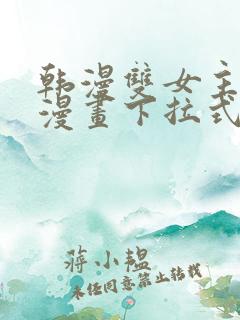 韩漫雙女主
漫畫下拉式
蔣小韞
未经同意禁止转载